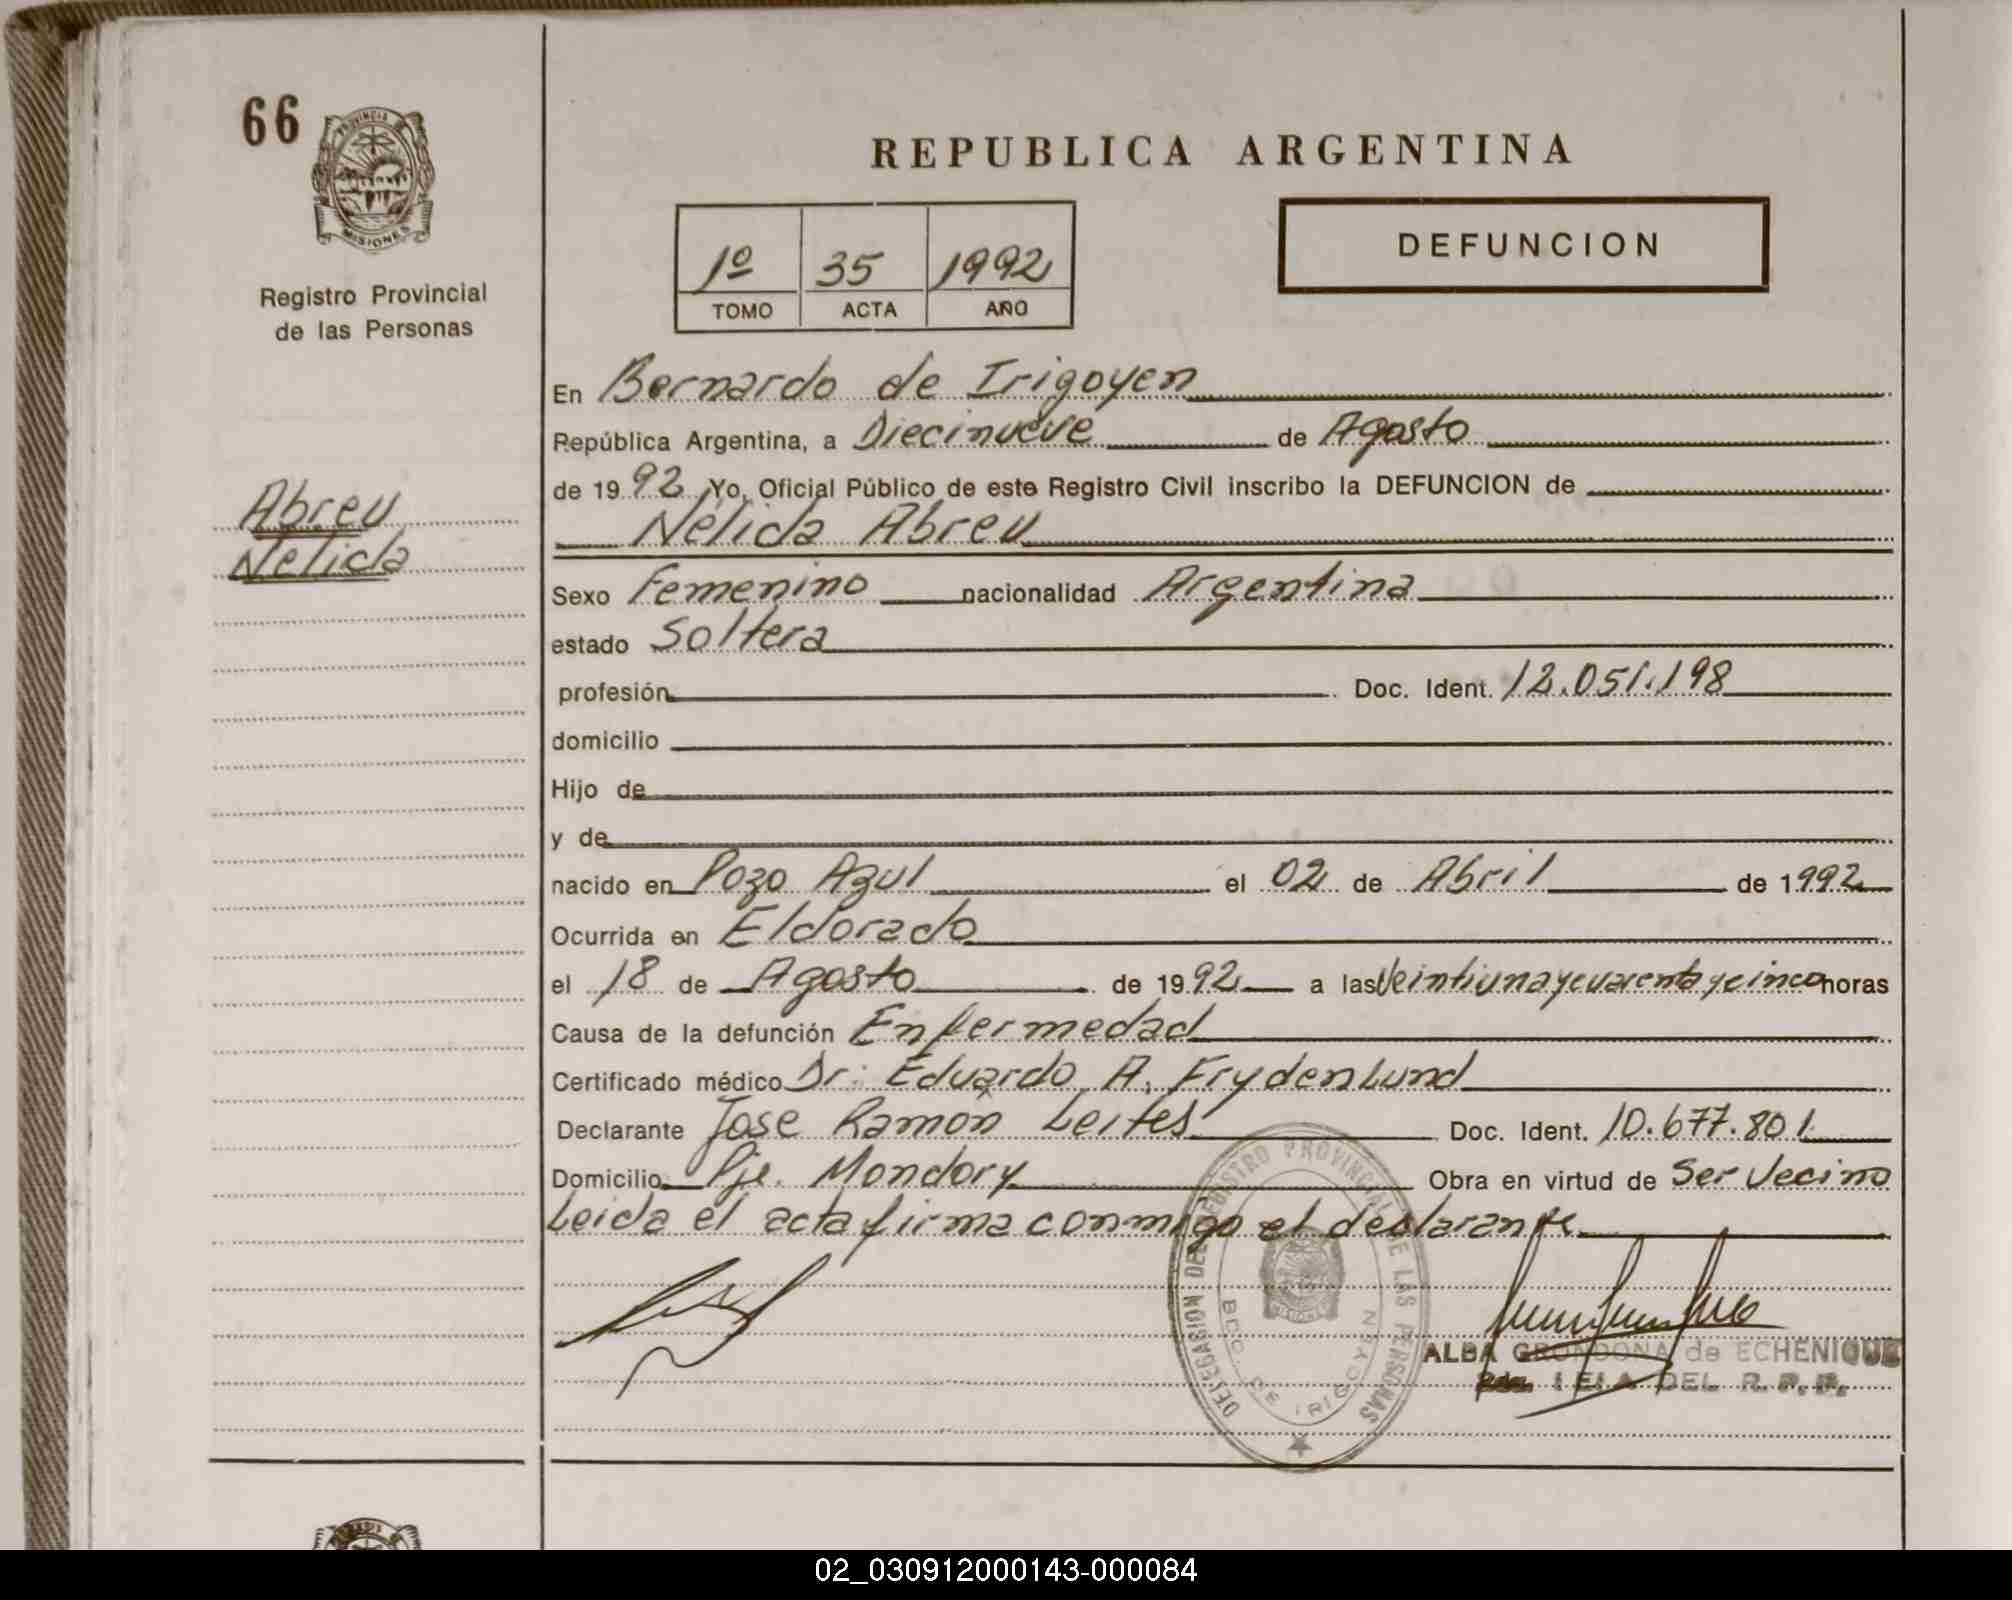 66
PROVINCIA DE
MISIONES
Registro Provincial
de las Personas
Abreu
Nélida
REPUBLICA ARGENTINA
1º 35 1992
TOMO ACTA AÑO
DEFUNCION
En Bernardo de Irigoyen
República Argentina, a Diecinueve de Agosto
de 1992 Yo, Oficial Público de este Registro Civil inscribo la DEFUNCION de
Nélida Abreu
Sexo Femenino nacionalidad Argentina
estado Soltera
profesión Doc. Ident. 12.051.198
domicilio
Hijo de
y de
nacido en Pozo Azul el 02 de Abril de 1992
Ocurrida en Eldorado
el 18 de Agosto de 1992 a las Veintiuna y cuarenta y cinco horas
Causa de la defunción Enfermedad
Certificado médico Dr: Eduardo A. Frydenlund
Declarante Jose Ramón Leites Doc. Ident. 10.677.801
Domicilio Pje. Mondory Obra en virtud de Ser Vecino
Leida el acta firma conmigo el declarante
DELEGACION DEL REGISTRO PROVINCIAL DE LAS PERSONAS
BDO. DE IRIGOYEN
ALBA GRONDONA de ECHENIQUE
DEL R. P. P.
02_030912000143-000084